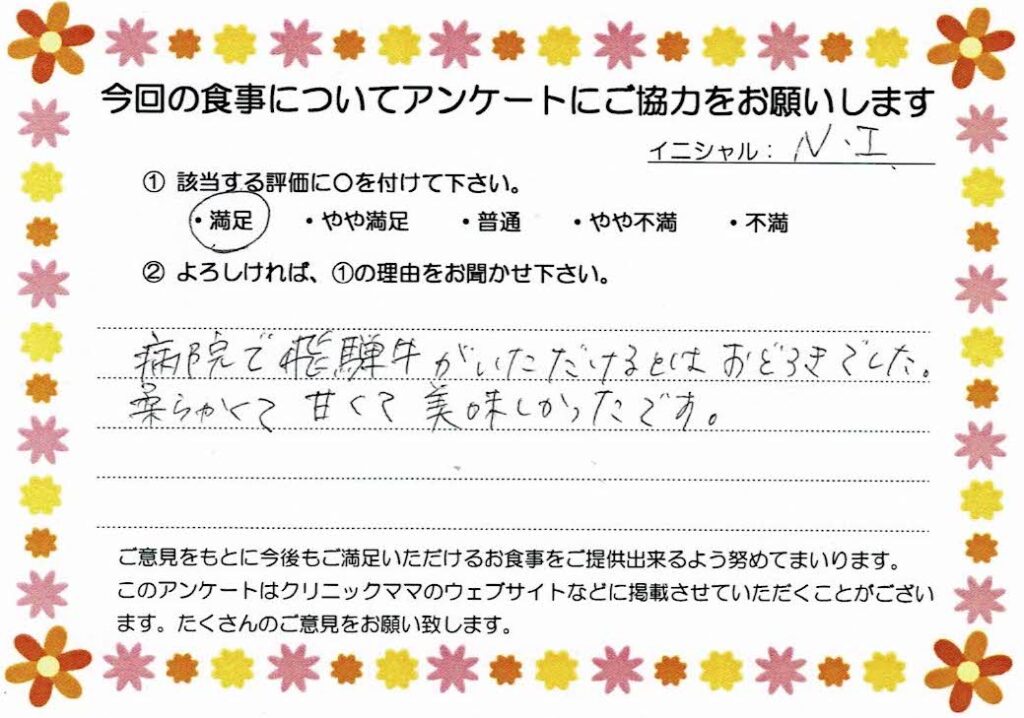 今回の食事についてアンケートにご協力をお願いします
イニシャル： N.I
① 該当する評価に〇を付けて下さい。
・満足 ・やや満足 ・普通 ・やや不満 ・不満
② よろしければ、①の理由をお聞かせ下さい。
病院で飛騨牛がいただけるとはおどろきでした。
柔らかくて 甘くて 美味しかったです。
ご意見をもとに今後もご満足いただけるお食事をご提供出来るよう努めてまいります。
このアンケートはクリニックママのウェブサイトなどに掲載させていただくことがござい
ます。たくさんのご意見をお願い致します。